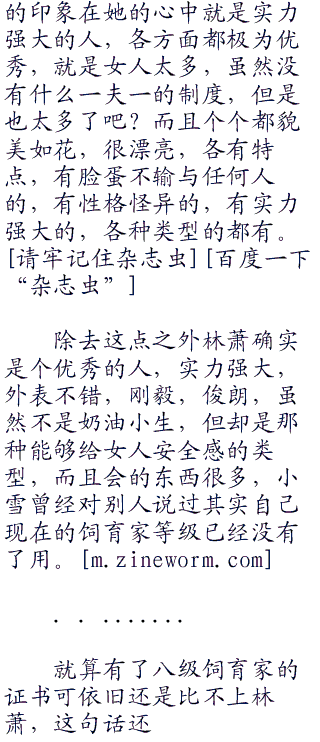 的印象在她的心中就是实力
强大的人，各方面都极为优
秀，就是女人太多，虽然没
有什么一夫一的制度，但是
也太多了吧？而且个个都貌
美如花，很漂亮，各有特
点，有脸蛋不输与任何人
的，有性格怪异的，有实力
强大的，各种类型的都有。
[请牢记住杂志虫][百度一下
“杂志虫”]
除去这点之外林萧确实
是个优秀的人，实力强大，
外表不错，刚毅，俊朗，虽
然不是奶油小生，但却是那
种能够给女人安全感的类
型，而且会的东西很多，小
雪曾经对别人说过其实自己
现在的饲育家等级已经没有
了用。[m.zineworm.com]
. . .......
就算有了八级饲育家的
证书可依旧还是比不上林
萧，这句话还